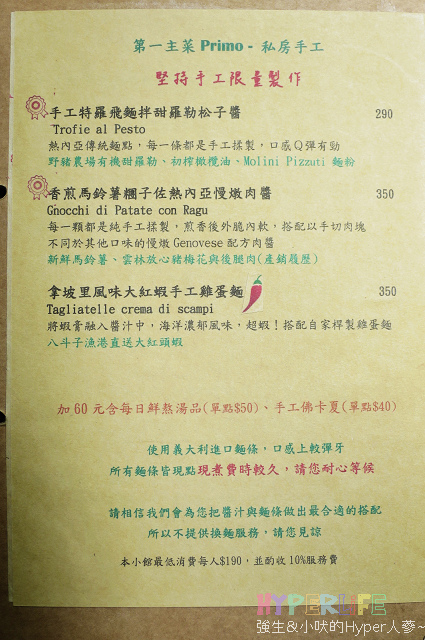 第一主菜 Primo - 私房手工
堅持手工限量製作
手工特羅飛麵拌甜羅勒松子醬 290
Trofie al Pesto
熱內亞傳統麵點，每一條都是手工揉製，口感Q彈有勁
野豬農場有機甜羅勒、初榨橄欖油、Molini Pizzuti 麵粉
香煎馬鈴薯糰子佐熱內亞慢燉肉醬 350
Gnocchi di Patate con Ragu
每一顆都是純手工揉製，煎香後外脆內軟，搭配以手切肉塊
不同於其他口味的慢燉 Genovese 配方肉醬
新鮮馬鈴薯、雲林放心豬梅花與後腿肉(產銷履歷)
拿坡里風味大紅蝦手工雞蛋麵 350
Tagliatelle crema di scampi
將蝦膏融入醬汁中，海洋濃郁風味，超蝦！搭配自家桿製雞蛋麵
八斗子漁港直送大紅頭蝦
加 60 元含每日鮮熬湯品(單點$50)、手工佛卡夏(單點$40)
使用義大利進口麵條，口感上較彈牙
所有麵條皆現點現煮費時較久，請您耐心等候
請相信我們會為您把醬汁與麵條做出最合適的搭配
所以不提供換麵服務，請您見諒
本小館最低消費每人$190，並酌收 10%服務費
HYPER LIFE
強生&小吠的Hyper人蔘~